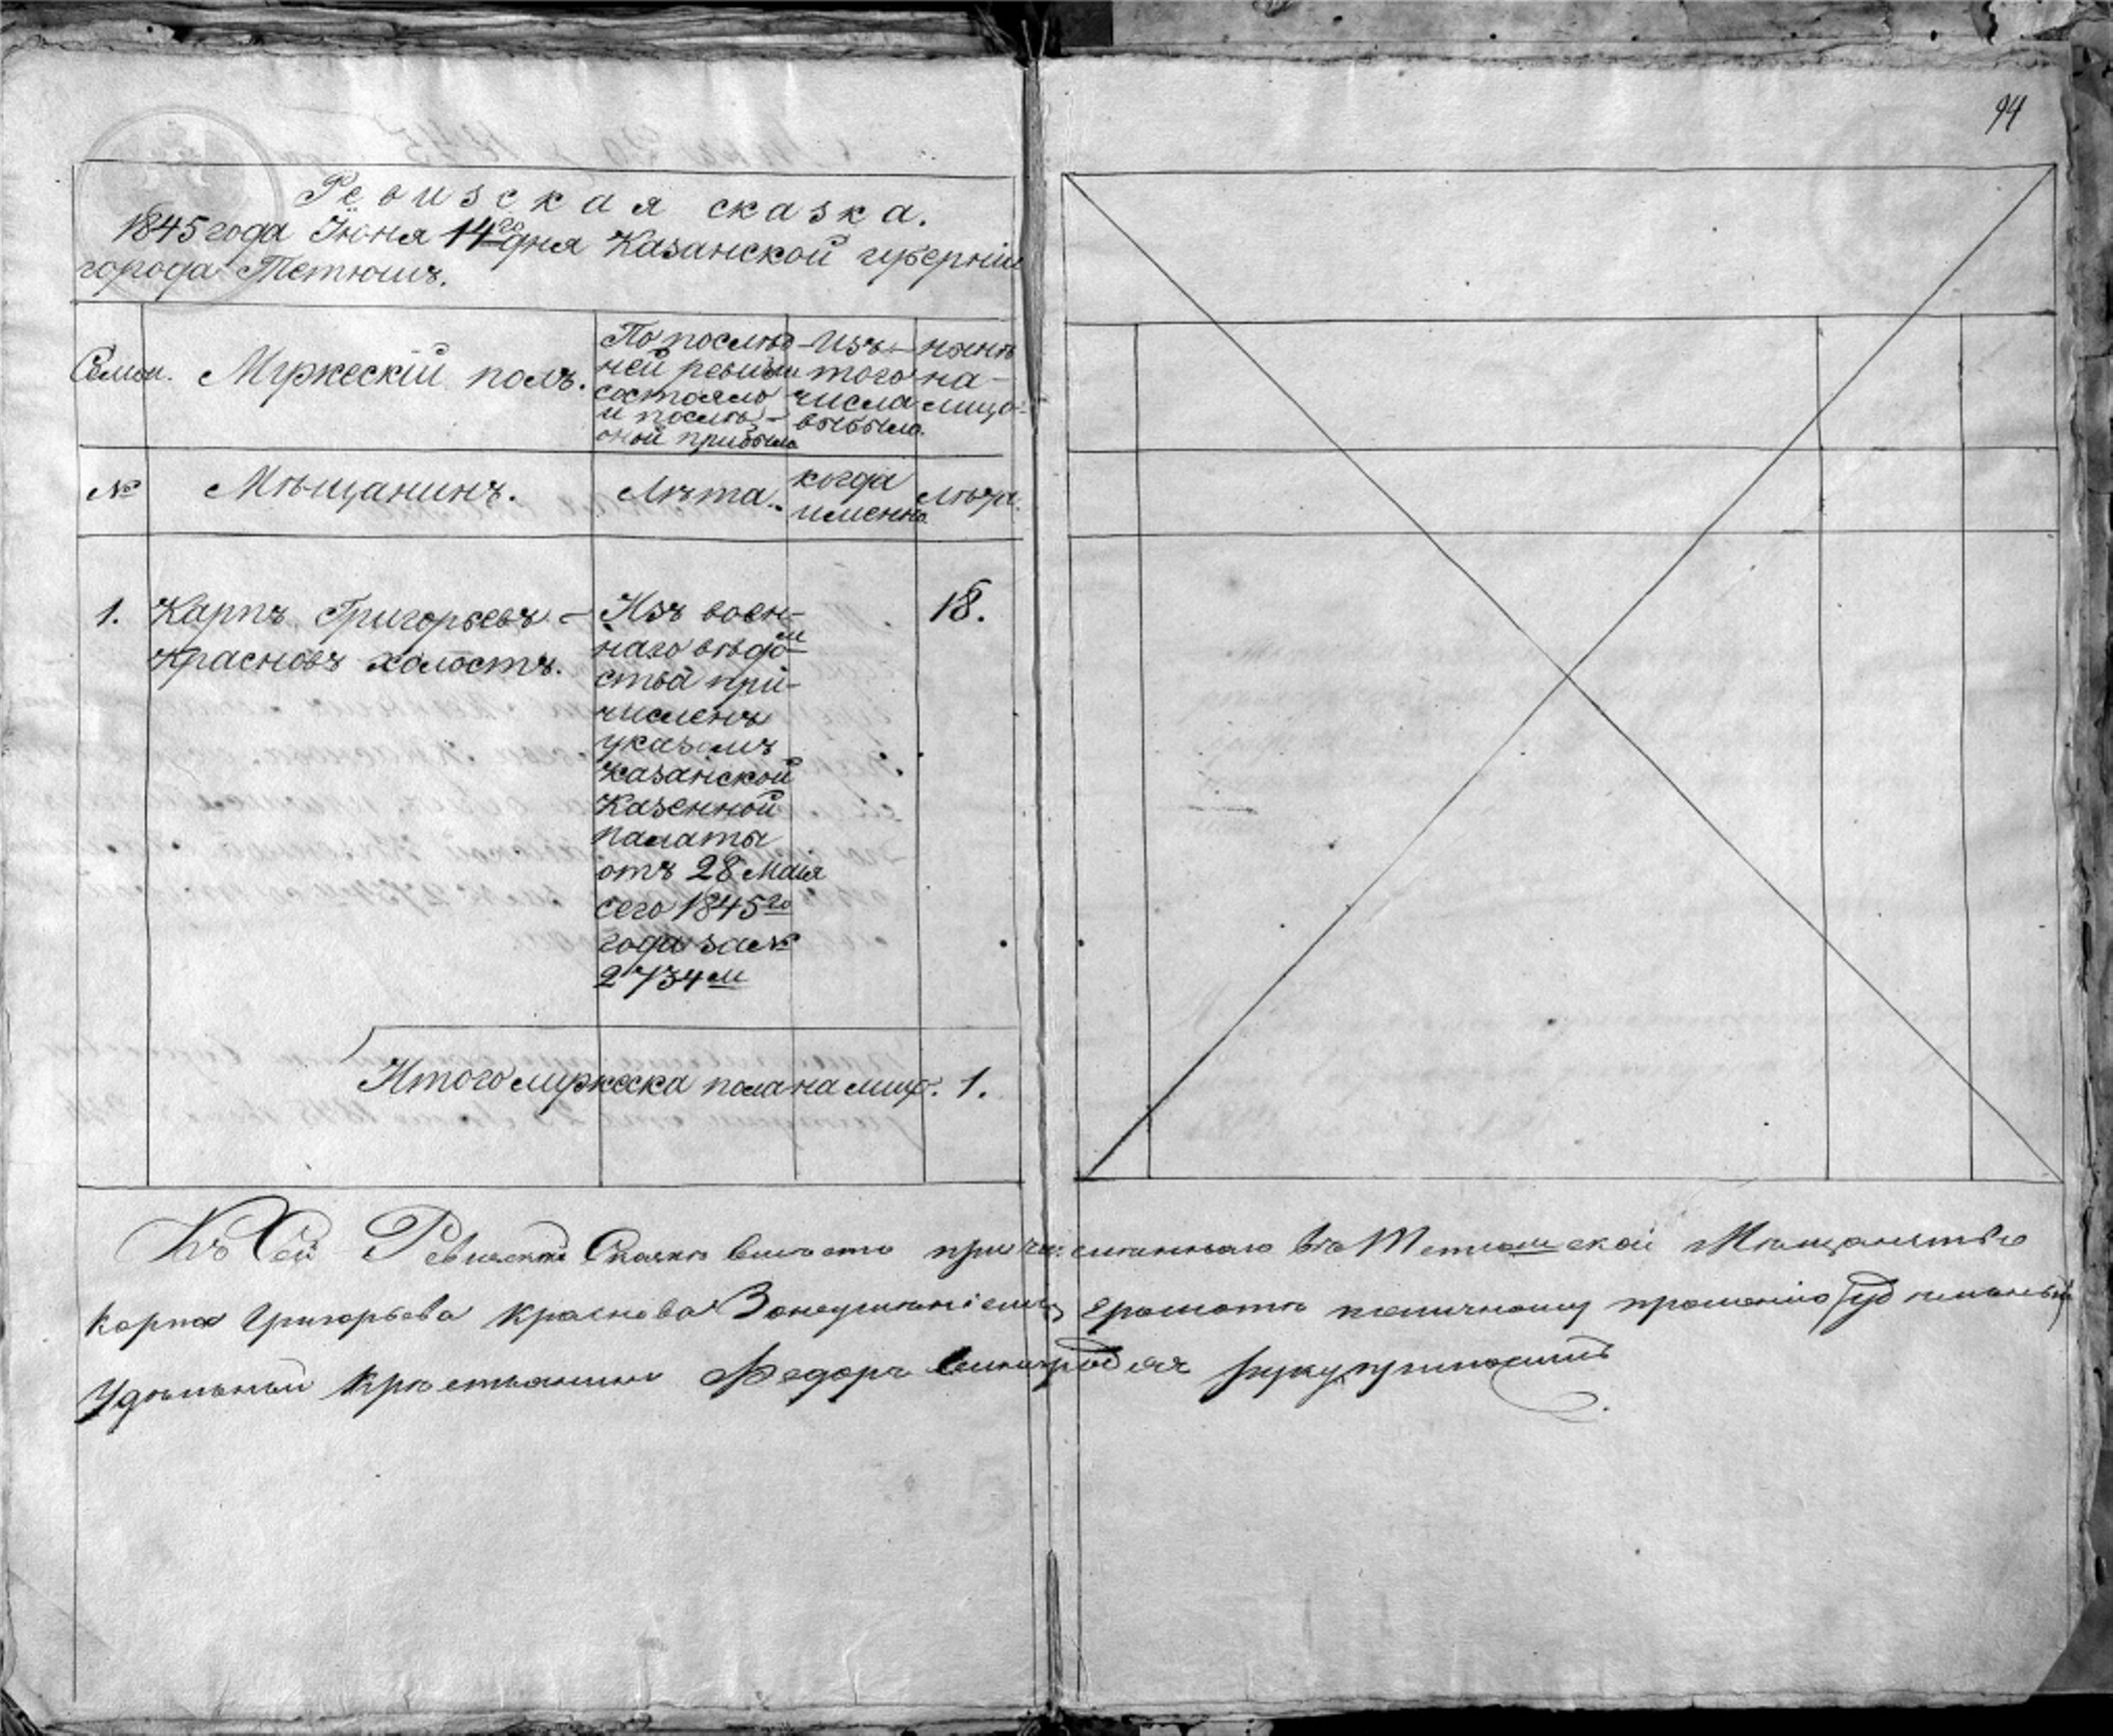 94
Ревизская сказка.
1845 года Іюня 14го дня Казанской губерніи
города Тетюшъ.
Семьи. Мужескій полъ.
По послѣд-
ней ревизіи
состояло
и послѣ
оной прибыло
Изъ
того
числа
выбыло.
нынѣ
на-
лицо
№ Мѣщанинъ. Лѣта.
когда
именно.
Лѣта.
1. Карпъ Григорьевъ
Красновъ холостъ.
Изъ воен-
наго вѣдом
ства при-
численъ
указомъ
Казанской
Казенной
палаты
отъ 28 Маія
сего 1845го
года за №
2734м
18.
Итого мужеска пола на лицо. 1.
Къ Сей Ревизской Сказкѣ вмѣсто причисленнаго въ Тетюшской Мѣщанство
Карпа Григорьева Краснова Занеумѣніемъ грамотѣ поличному прошенію
Удѣльный Крестьянинъ Федоръ руку приложилъ